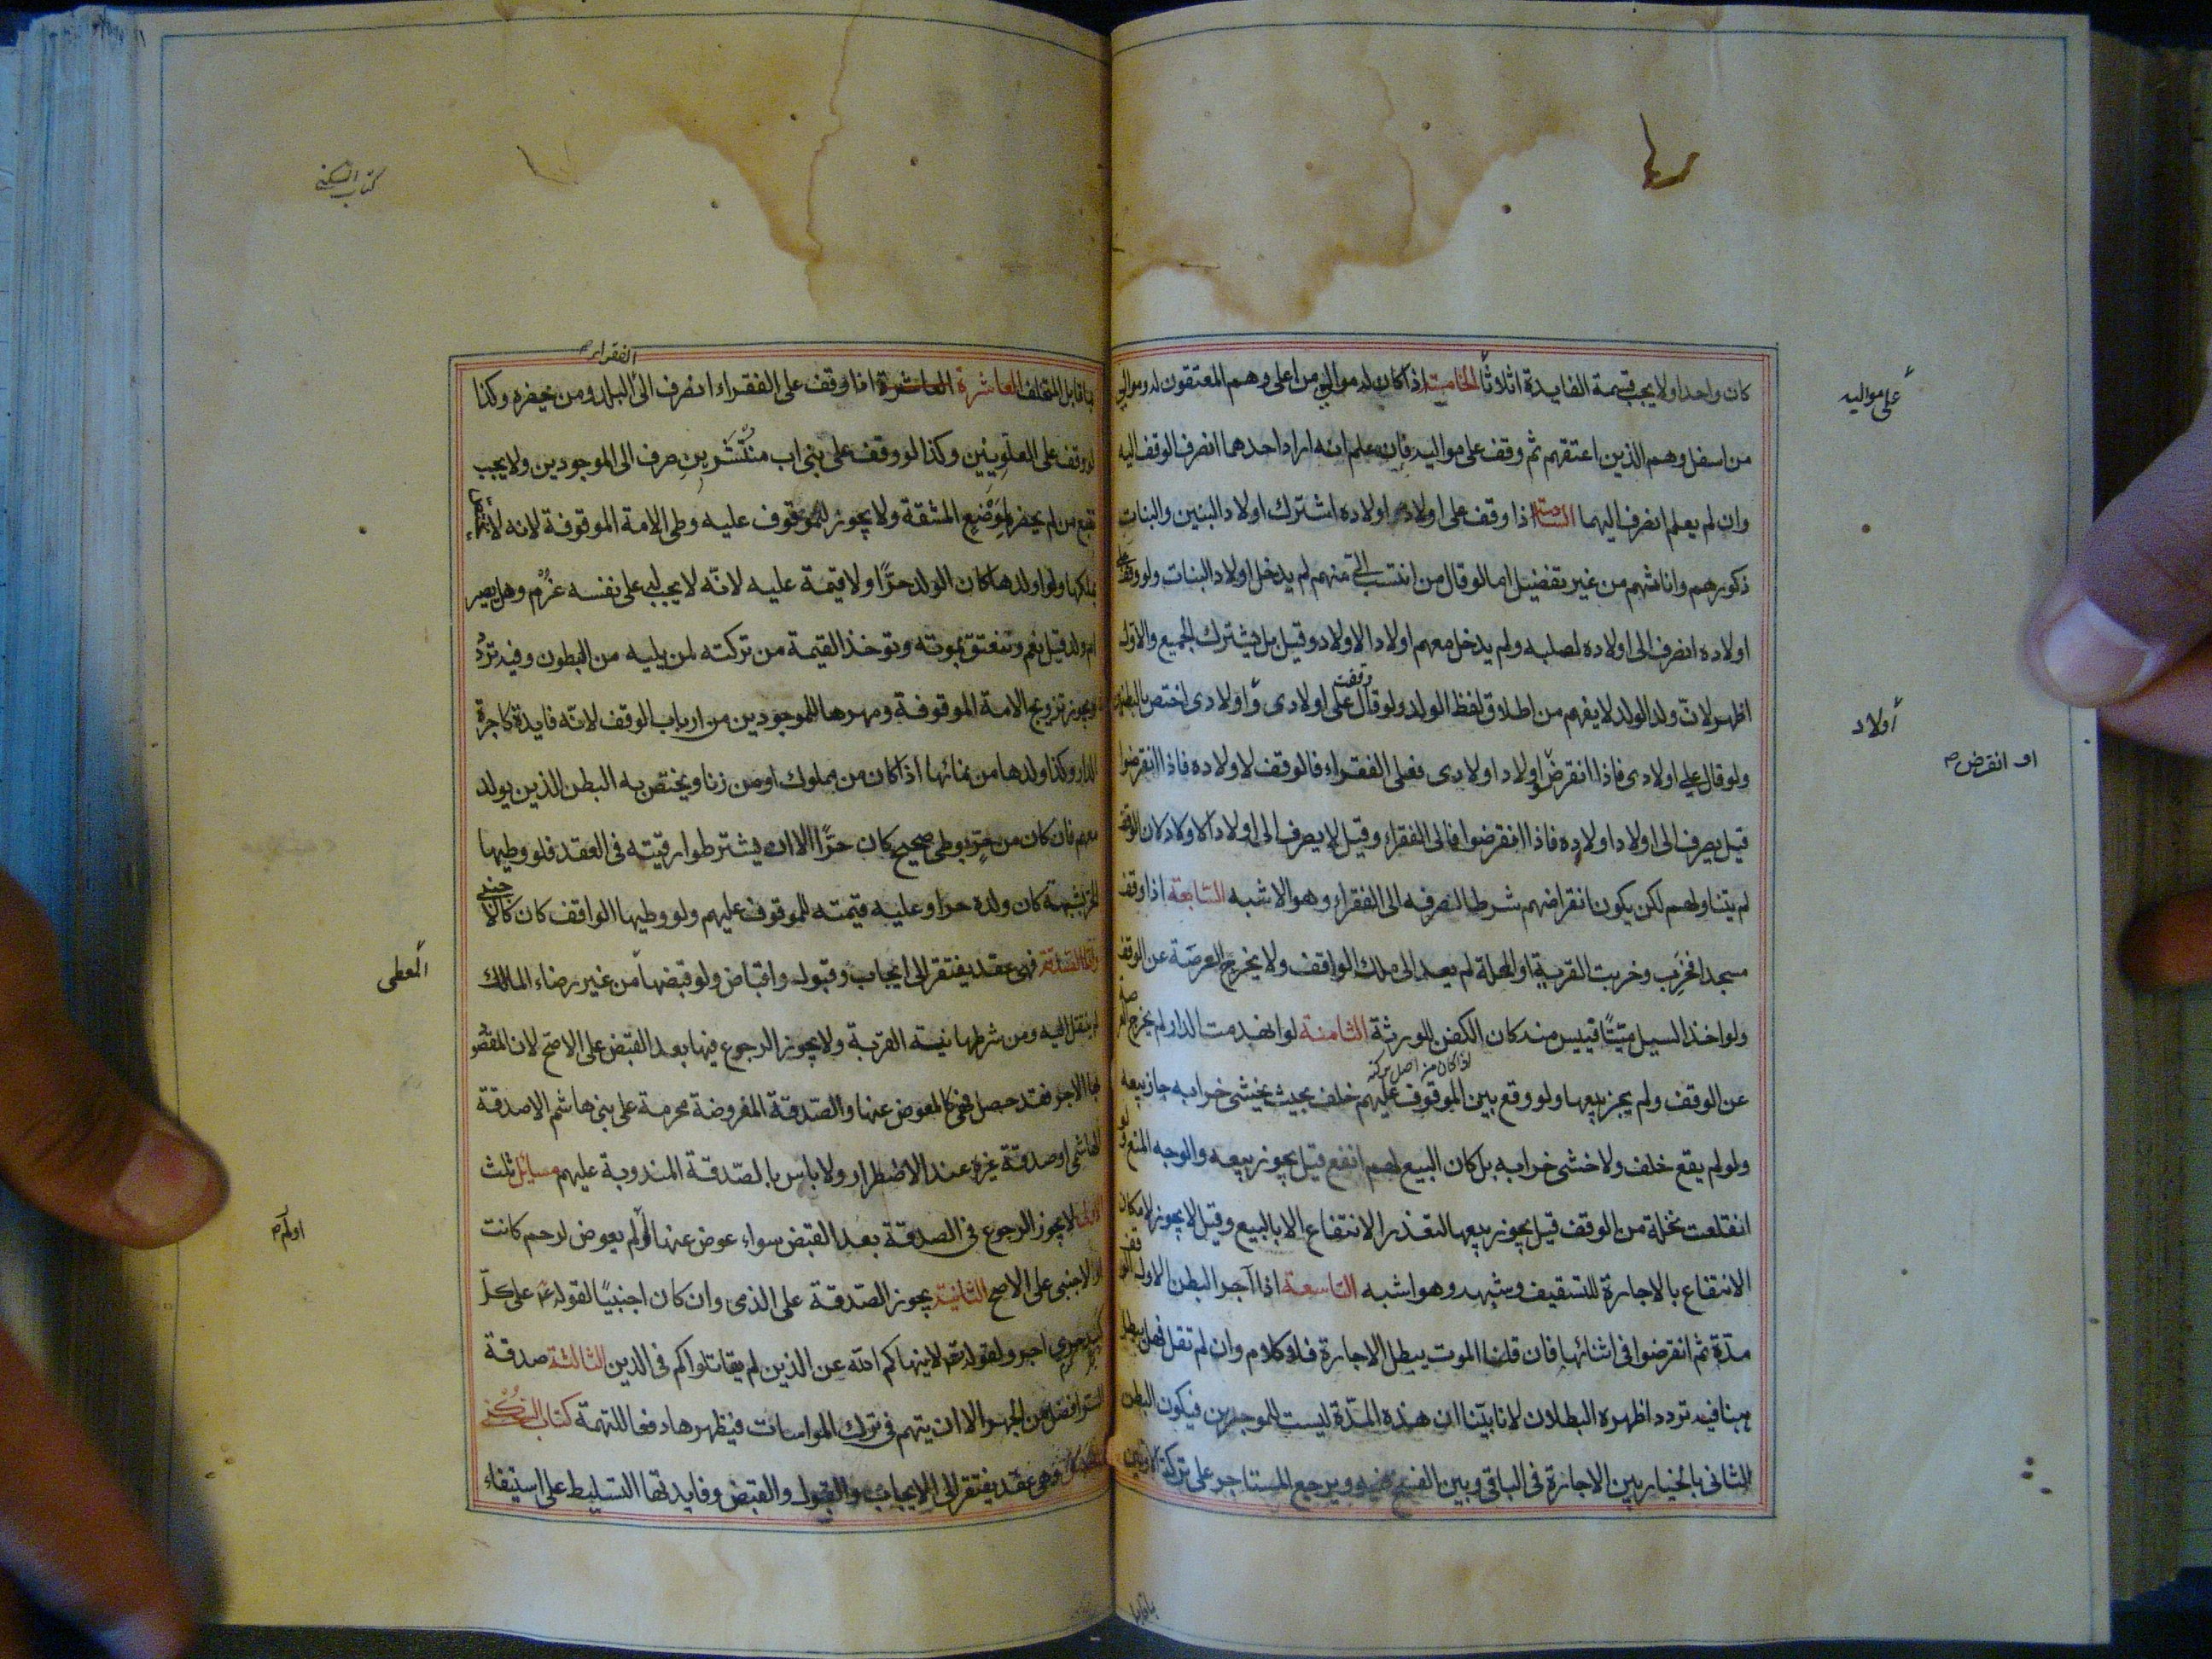 كان واحدا ولا يجب قسمة الفايدة اثلاثا الخامسة اذا كان له موالى من اعلى وهم المعتقون له وموالى
من اسفل وهم الذين اعتقهم ثم وقف على مواليه فان علم انه اراد احدهما انصرف الوقف اليه
وان لم يعلم انصرف اليهما السادسة اذا وقف على اولاد اولاده اشترك اولاد البنين والبنات
ذكورهم واناثهم من غير تفضيل اما لو قال من انتسب الىّ منهم لم يدخل اولاد البنات ولو وقف على
اولاده انصرف الى اولاده لصلبه ولم يدخل معهم اولاد الاولاد وقيل بل يشترك الجميع والاول
اظهر لان ولد الولد لا يفهم من اطلاق لفظ الولد ولو قال وقفت على اولادى واولادى اختص بالبطنين
ولو قال على اولادى فاذا انقرض اولاد اولادى فعلى الفقراء فالوقف لاولاده فاذا انقرضوا
قيل يصرف الى اولاد اولاده فاذا انقرضوا فالى الفقراء وقيل لا يصرف الى اولاد الاولاد لان الوقف
لم يتناولهم لكن يكون انقراضهم شرطا لصرفه الى الفقراء وهو الاشبه السابعة اذا وقف
مسجدا فخرب وخربت القرية او المحلة لم يعد الى ملك الواقف ولا يخرج العرصة عن الوقف
ولو اخذ السيل ميّتًا فييس منه كان الكفن للورثة الثامنة لو انهدمت الدار لم يخرج العرصة
اذا كان من اصل تركته
عن الوقف ولم يجز بيعها ولو وقع بين الموقوف عليهم خلف بحيث يخشى خرابه جاز بيعه
ولو لم يقع خلف ولا خشى خرابه بل كان البيع لهم انفع قيل يجوز بيعه والوجه المنع ولو
انقلعت نخلة من الوقف قيل يجوز بيعها لتعذر الانتفاع الا بالبيع وقيل لا يجوز لامكان
الانتفاع بالاجارة للتسقيف وشبهه وهو اشبه التاسعة اذا آجر البطن الاول الوقف
مدّة ثم انقرضوا فى اثنائها فان قلنا الموت يبطل الاجارة فلا كلام وان لم تقل فهل يبطل
هنا فيه تردد اظهره البطلان لانا بيّنا ان هذه المدّة ليست للموجدين فيكون البطن
الثانى بالخيار بين الاجازة فى الباقى وبين الفسخ فيه ويرجع المستاجر على تركة الاولين
على مواليه
اولاد
او انقرض
كتاب السكنى
الفقراء
ما قابل المتخلف العاشرة اذا وقف على الفقراء انصرف الى البلد ومن يحضره وكذا
لو وقف على العلويين وكذا لو وقف على بنى اب منتشرين صرف الى الموجودين ولا يجب
تتبع من لم يحضر لموضع المشقة ولا يجوز للموقوف عليه وطى الامة الموقوفة لانه لا
يملكها ولو اولدها كان الولد حرًّا ولا قيمة عليه لانّه لا يجب له على نفسه غرم وهل يصير
ام ولد قيل نعم وتنعتق بموته وتوخذ القيمة من تركته لمن يليه من البطون وفيه تردّد
ويجوز تزويج الامة الموقوفة ومهرها للموجودين من ارباب الوقف لانّه فايدة كاجرة
الدار وكذا ولدها من نمائها اذا كان من مملوك او من زنا ويختص به البطن الذين يولد
معهم فان كان من حرّ بوطى صحيح كان حرًّا الا ان يشترطوا رقيته فى العقد فلو وطيها
الحر بشبهة كان ولده حرا وعليه قيمته للموقوف عليهم ولو وطيها الواقف كان كالاجنبى
واما الصدقة فهى عقد يفتقر الى ايجاب وقبول واقباض ولو قبضها من غير رضاء المالك
لم ينتقل اليه ومن شرطها نية القربة ولا يجوز الرجوع فيها بعد القبض على الاصح لان المقصود
بها الاجر فقد حصل فهى كالمعوض عنها والصّدقة المفروضة محرمة على بنى هاشم الا صدقة
الهاشمى او صدقة غيره عند الاضطرار ولا باس بالصّدقة المندوبة عليهم مسائل ثلث
الاولى لا يجوز الرجوع فى الصدقة بعد القبض سواء عوض عنها او لم يعوض لرحم كانت
او لاجنبى على الاصح الثانية يجوز الصّدقة على الذمى وان كان اجنبيًا لقوله ع على كلّ
كبد حرى اجر ولقوله تعالى لا ينهاكم الله عن الذين لم يقاتلوكم فى الدين الثالثة صدقة
السر افضل من الجهر الا ان يتهم فى ترك المواسات فيظهرها دفعا للتهمة كتاب السكنى
وهى عقد يفتقر الى الايجاب والقبول والقبض وفايدتها التسليط على استيفاء
المعطى
اولم